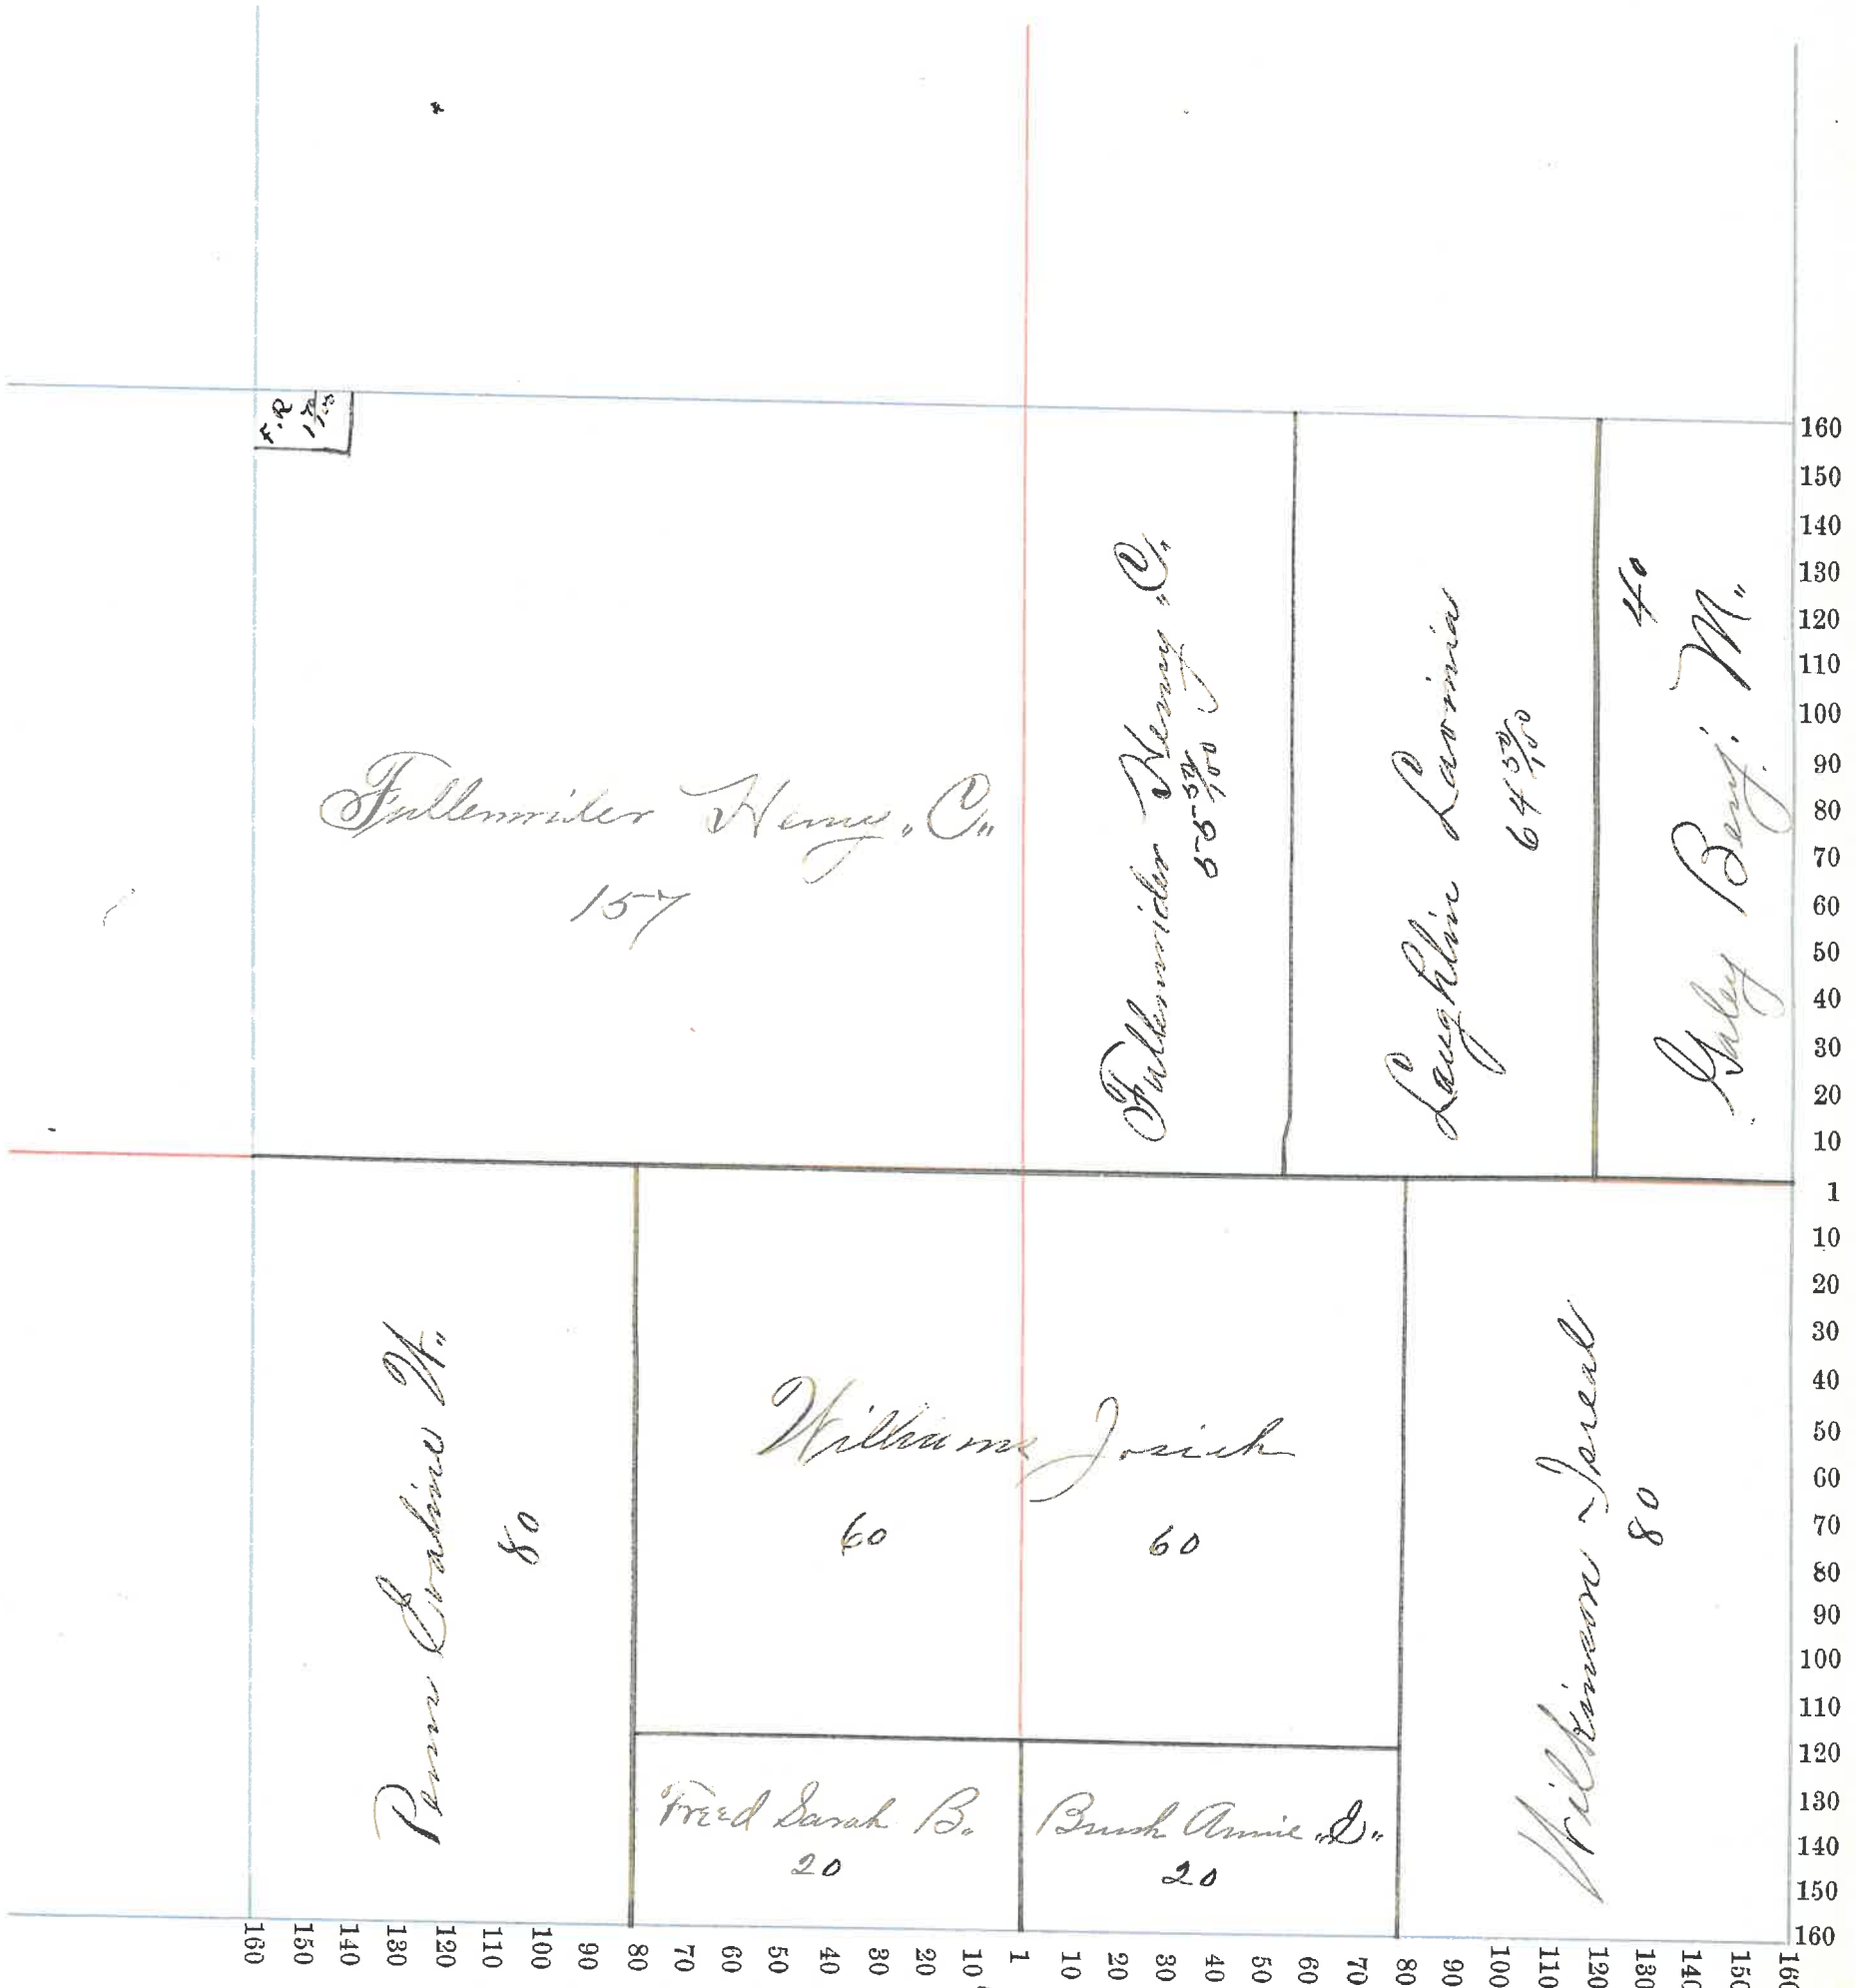 F.R
Fullenwider Henry "C"
157
Fullenwider Henry "C.
55 50/100
Laughlin Lavinia
64 50/100
40
Galey Benj. M.
160
150
140
130
120
110
100
90
80
70
60
50
40
30
20
10
1
10
20
30
40
50
60
70
80
90
100
110
120
130
140
150
160
Penn Evaline W.
80
Williams Josiah
60 60
Wilkinson Isreal
80
Freed Sarah B.
20
Brush Annie "S"
20
160 150 140 130 120 110 100 90 80 70 60 50 40 30 20 10 1 10 20 30 40 50 60 70 80 90 100 110 120 130 140 150 160